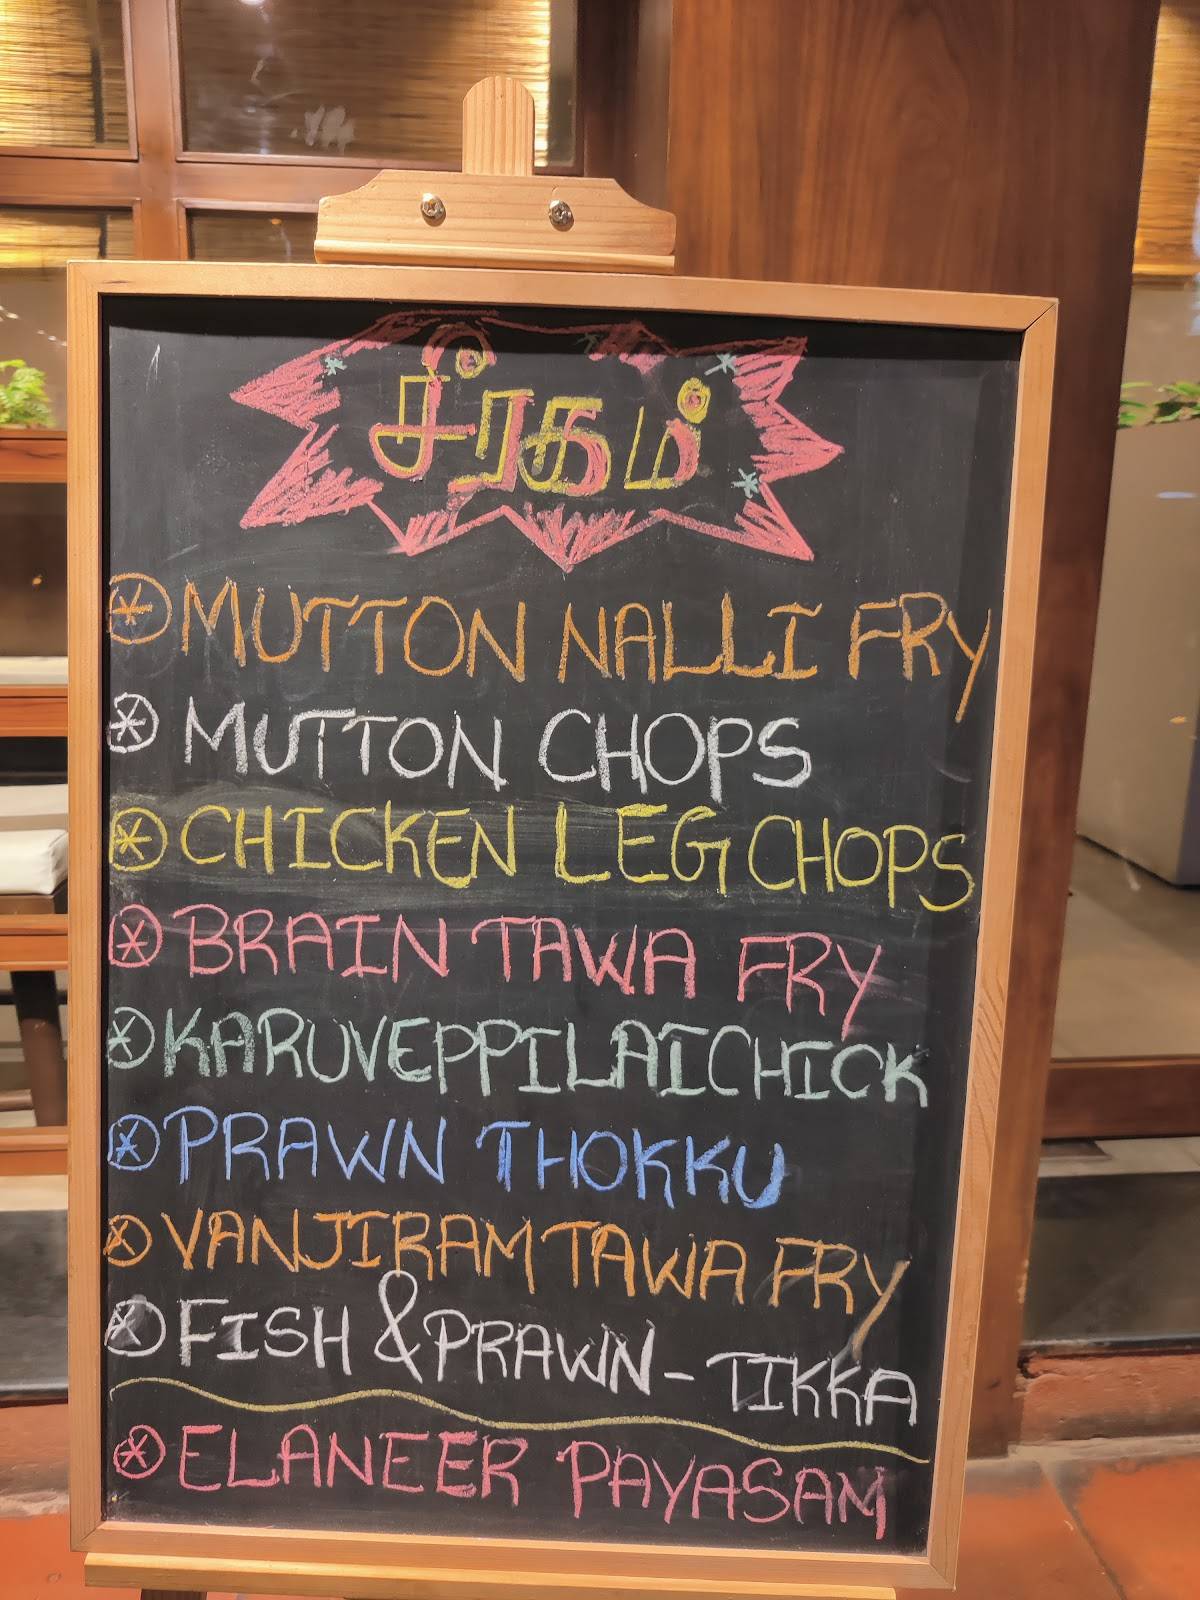 சீரகம்
MUTTON NALLI FRY
MUTTON CHOPS
CHICKEN LEG CHOPS
BRAIN TAWA FRY
KARUVEPPILAI CHICK
PRAWN THOKKU
VANJIRAM TAWA FRY
FISH & PRAWN - TIKKA
ELANEER PAYASAM